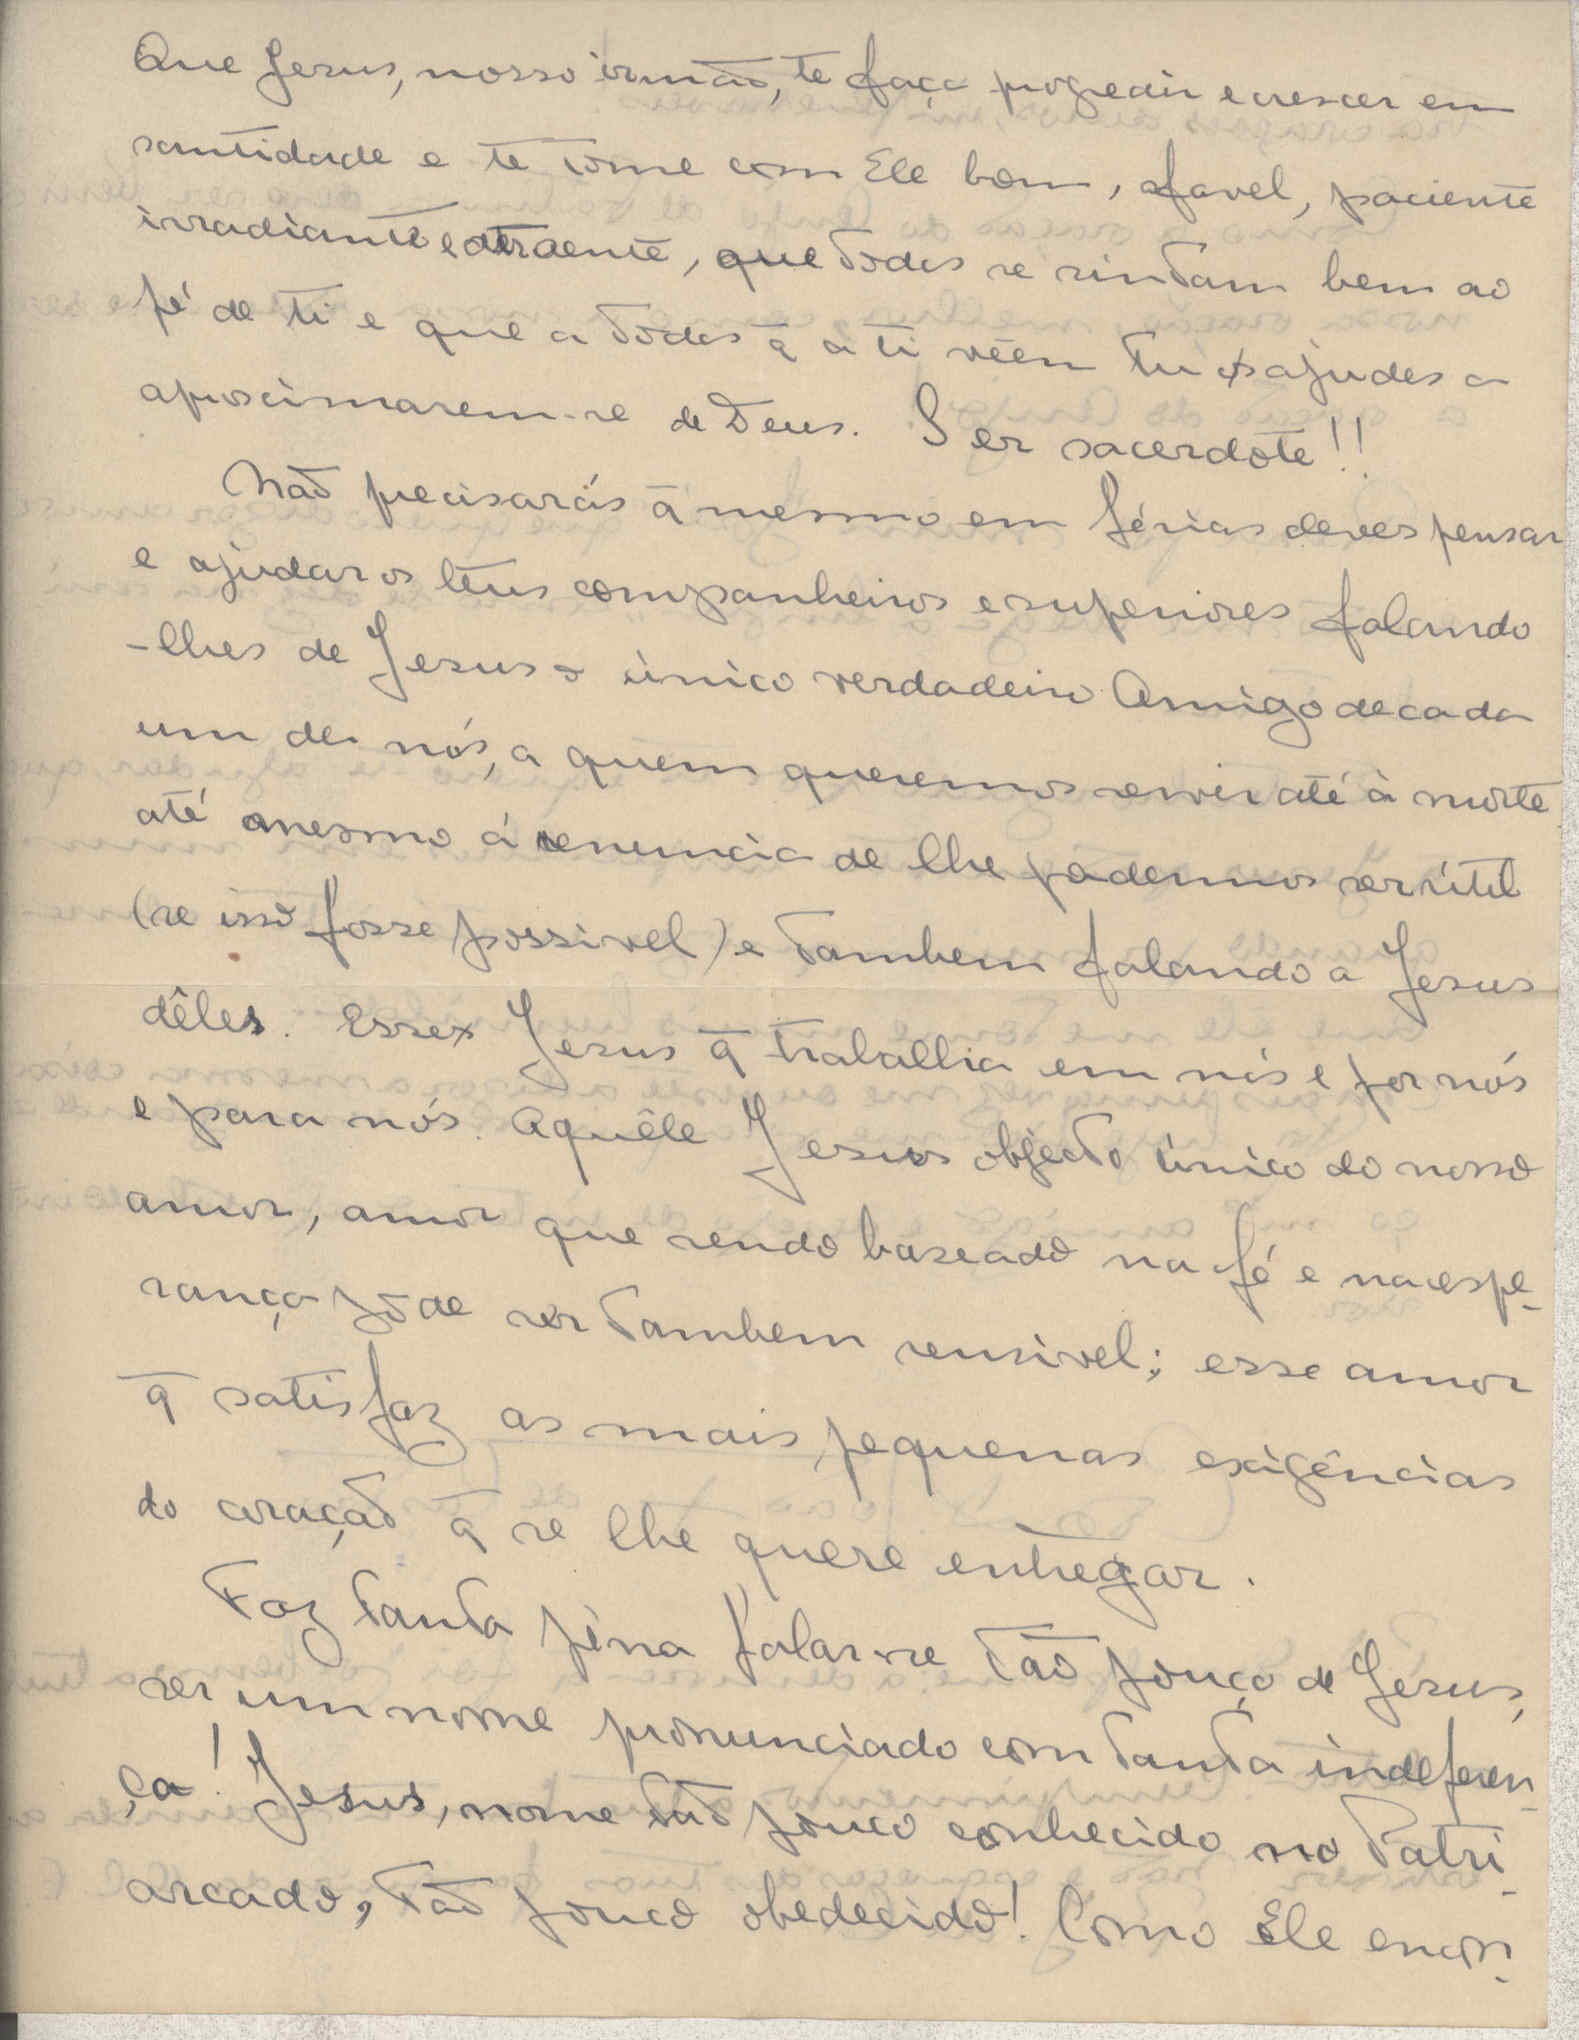 Que Jesus, nosso irmão, te faça progredir e crescer em
santidade e te torne com Ele bom, afavel, paciente
irradiante e atraente, que todos se sintam bem ao
pé de ti e que a todos q̄ a ti vêem tu os ajudes a
aproximarem-se de Deus. Ser sacerdote!!
Não precisarás q̄ mesmo em férias deves pensar
e ajudar os teus companheiros e superiores falando
-lhes de Jesus o único verdadeiro Amigo de cada
um de nós, a quem queremos servir até à morte
até mesmo á renuncia de lhe podermos ser útil
(se isso fosse possivel) e tambem falando a Jesus
dêles. Esse Jesus q̄ trabalha em nós e por nós
e para nós. Aquêle Jesus objecto único do nosso
amor, amor que sendo baseado na fé e na espe-
rança póde ser tambem sensivel; esse amor
q̄ satisfaz as mais pequenas exigências
do coração q̄ se lhe quere entregar.
Faz tanta pêna falar-se tão pouço de Jesus,
ser um nome pronunciado com tanta indeferen-
ça! Jesus, nome tão pouco conhecido no Patri-
arcado, tão pouco obedecido! Como Ele encon-